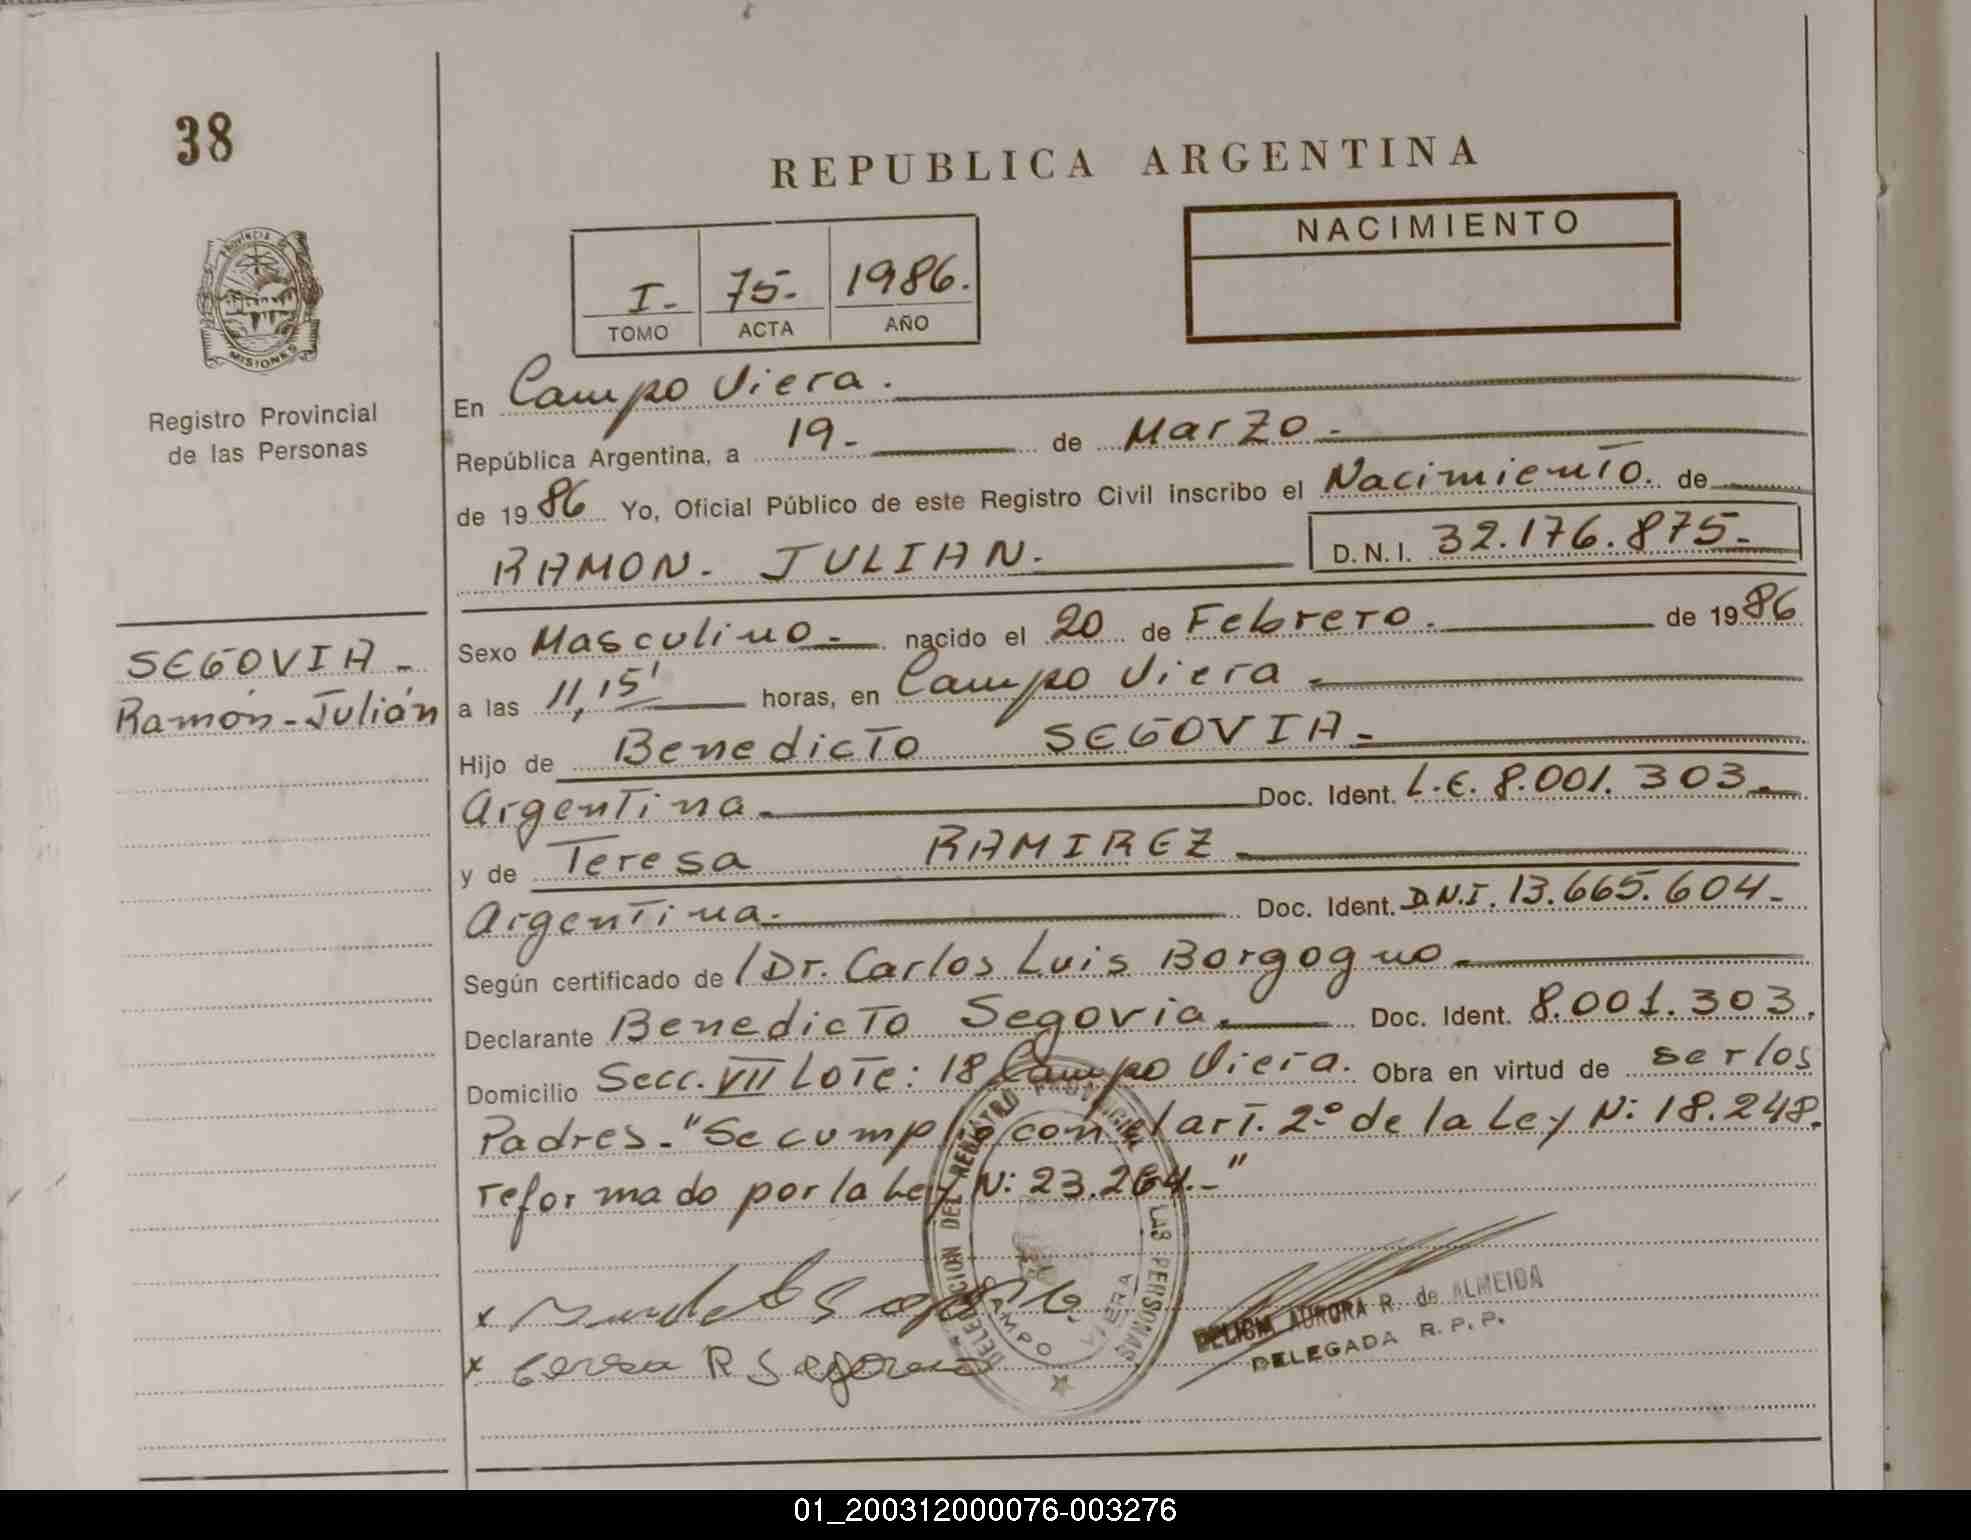 38
REPUBLICA ARGENTINA
PROVINCIA
MISIONES
Registro Provincial
de las Personas
I- 75- 1986.
TOMO ACTA AÑO
NACIMIENTO
En Campo Viera.
República Argentina, a 19- de Marzo-
de 1986 Yo, Oficial Público de este Registro Civil inscribo el Nacimiento. de
RAMON- JULIAN. D.N.I. 32.176.875-
SEGOVIA-
Ramón-Julián
Sexo Masculino- nacido el 20 de Febrero. de 1986
a las 11,15' horas, en Campo Viera-
Hijo de Benedicto SEGOVIA-
Argentina- Doc. Ident. L.E. 8.001.303-
y de Teresa RAMIREZ-
Argentina- Doc. Ident. D.N.I. 13.665.604-
Según certificado de /Dr. Carlos Luis Borgogno-
Declarante Benedicto Segovia- Doc. Ident. 8.001.303.
Domicilio Secc. VII Lote: 18 Campo Viera. Obra en virtud de ser los
Padres-"Se cumplió con el art. 2º de la Ley N: 18.248.
reformado por la Ley N: 23.264.-"
DELEGACION DEL REGISTRO PROVINCIAL LAS PERSONAS
CAMPO VIERA
x
x Teresa R Segovia
AURORA R. de ALMEIDA
DELEGADA R.P.P.
01_200312000076-003276